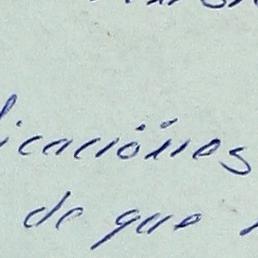 licaciones
de que